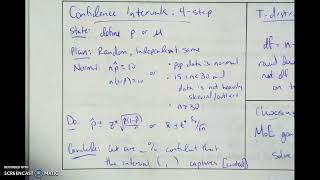 Confidence Intervals: 4-step
State: define p or μ
Plan: Random, Independent same
Normal: np̂ ≥ 10 or • pop data is normal
n(1-p̂) = 10 • 15 ≤ n < 30 and
data is not heavily
skewed/outliers
• n ≥ 30
Do: p̂ ± z* √p̂(1-p̂)/n or x̄ ± t* Sx/√n
Conclude: We are _% confident that
the interval ( , ) captures [context]
T-distri
df = n-
round
not
on t
Choosin
MoE
solve
RECORDED WITH
SCREENCAST MATIC